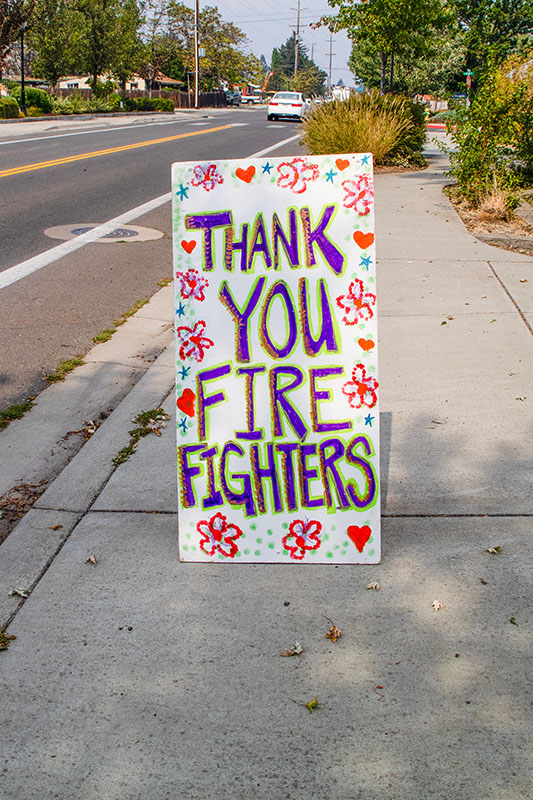 THANK
YOU
FIRE
FIGHTERS